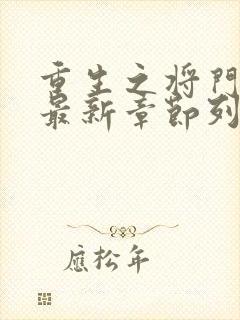 重生之将门
最新章节列
應松年